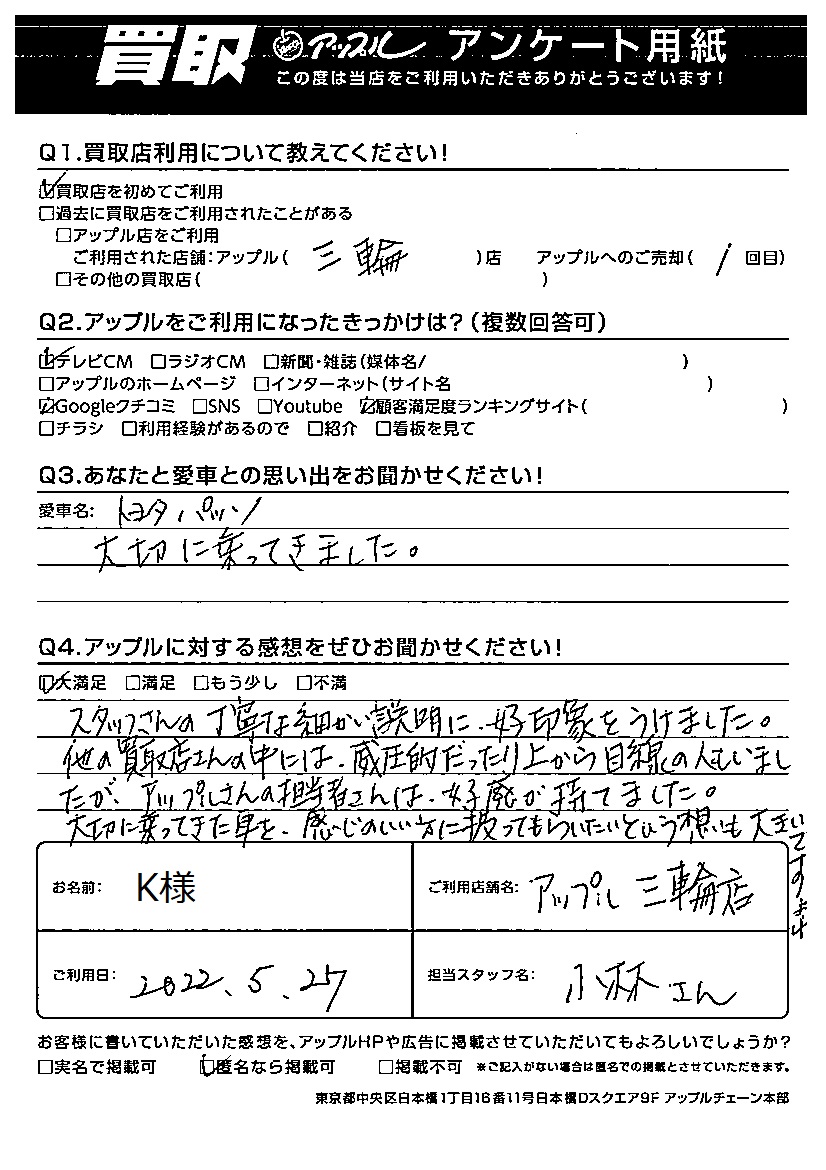 買取 アップル アンケート用紙
この度は当店をご利用いただきありがとうございます!
Q1.買取店利用について教えてください!
☑買取店を初めてご利用
□過去に買取店をご利用されたことがある
□アップル店をご利用
ご利用された店舗:アップル( 三輪 )店 アップルへのご売却( 1 回目)
□その他の買取店( )
Q2.アップルをご利用になったきっかけは?(複数回答可)
☑テレビCM □ラジオCM □新聞・雑誌(媒体名/ )
□アップルのホームページ □インターネット(サイト名 )
☑Googleクチコミ □SNS □Youtube ☑顧客満足度ランキングサイト( )
□チラシ □利用経験があるので □紹介 □看板を見て
Q3.あなたと愛車との思い出をお聞かせください!
愛車名: トヨタ パッソ
大切に乗ってきました。
Q4.アップルに対する感想をぜひお聞かせください!
☑大満足 □満足 □もう少し □不満
スタッフさんの丁寧な細かい説明に、好印象をうけました。
他の買取店さんの中には、威圧的だったり上から目線の人もいまし
たが、アップルさんの担当者さんは、好感が持てました。
大切に乗ってきた車を、感じのいい方に扱ってもらいたいという想いも大きいですよね
お名前: K様 ご利用店舗名: アップル三輪店
ご利用日: 2022.5.27 担当スタッフ名: 小林さん
お客様に書いていただいた感想を、アップルHPや広告に掲載させていただいてもよろしいでしょうか?
□実名で掲載可 ☑匿名なら掲載可 □掲載不可 ※ご記入がない場合は匿名での掲載とさせていただきます。
東京都中央区日本橋1丁目16番11号日本橋Dスクエア9F アップルチェーン本部